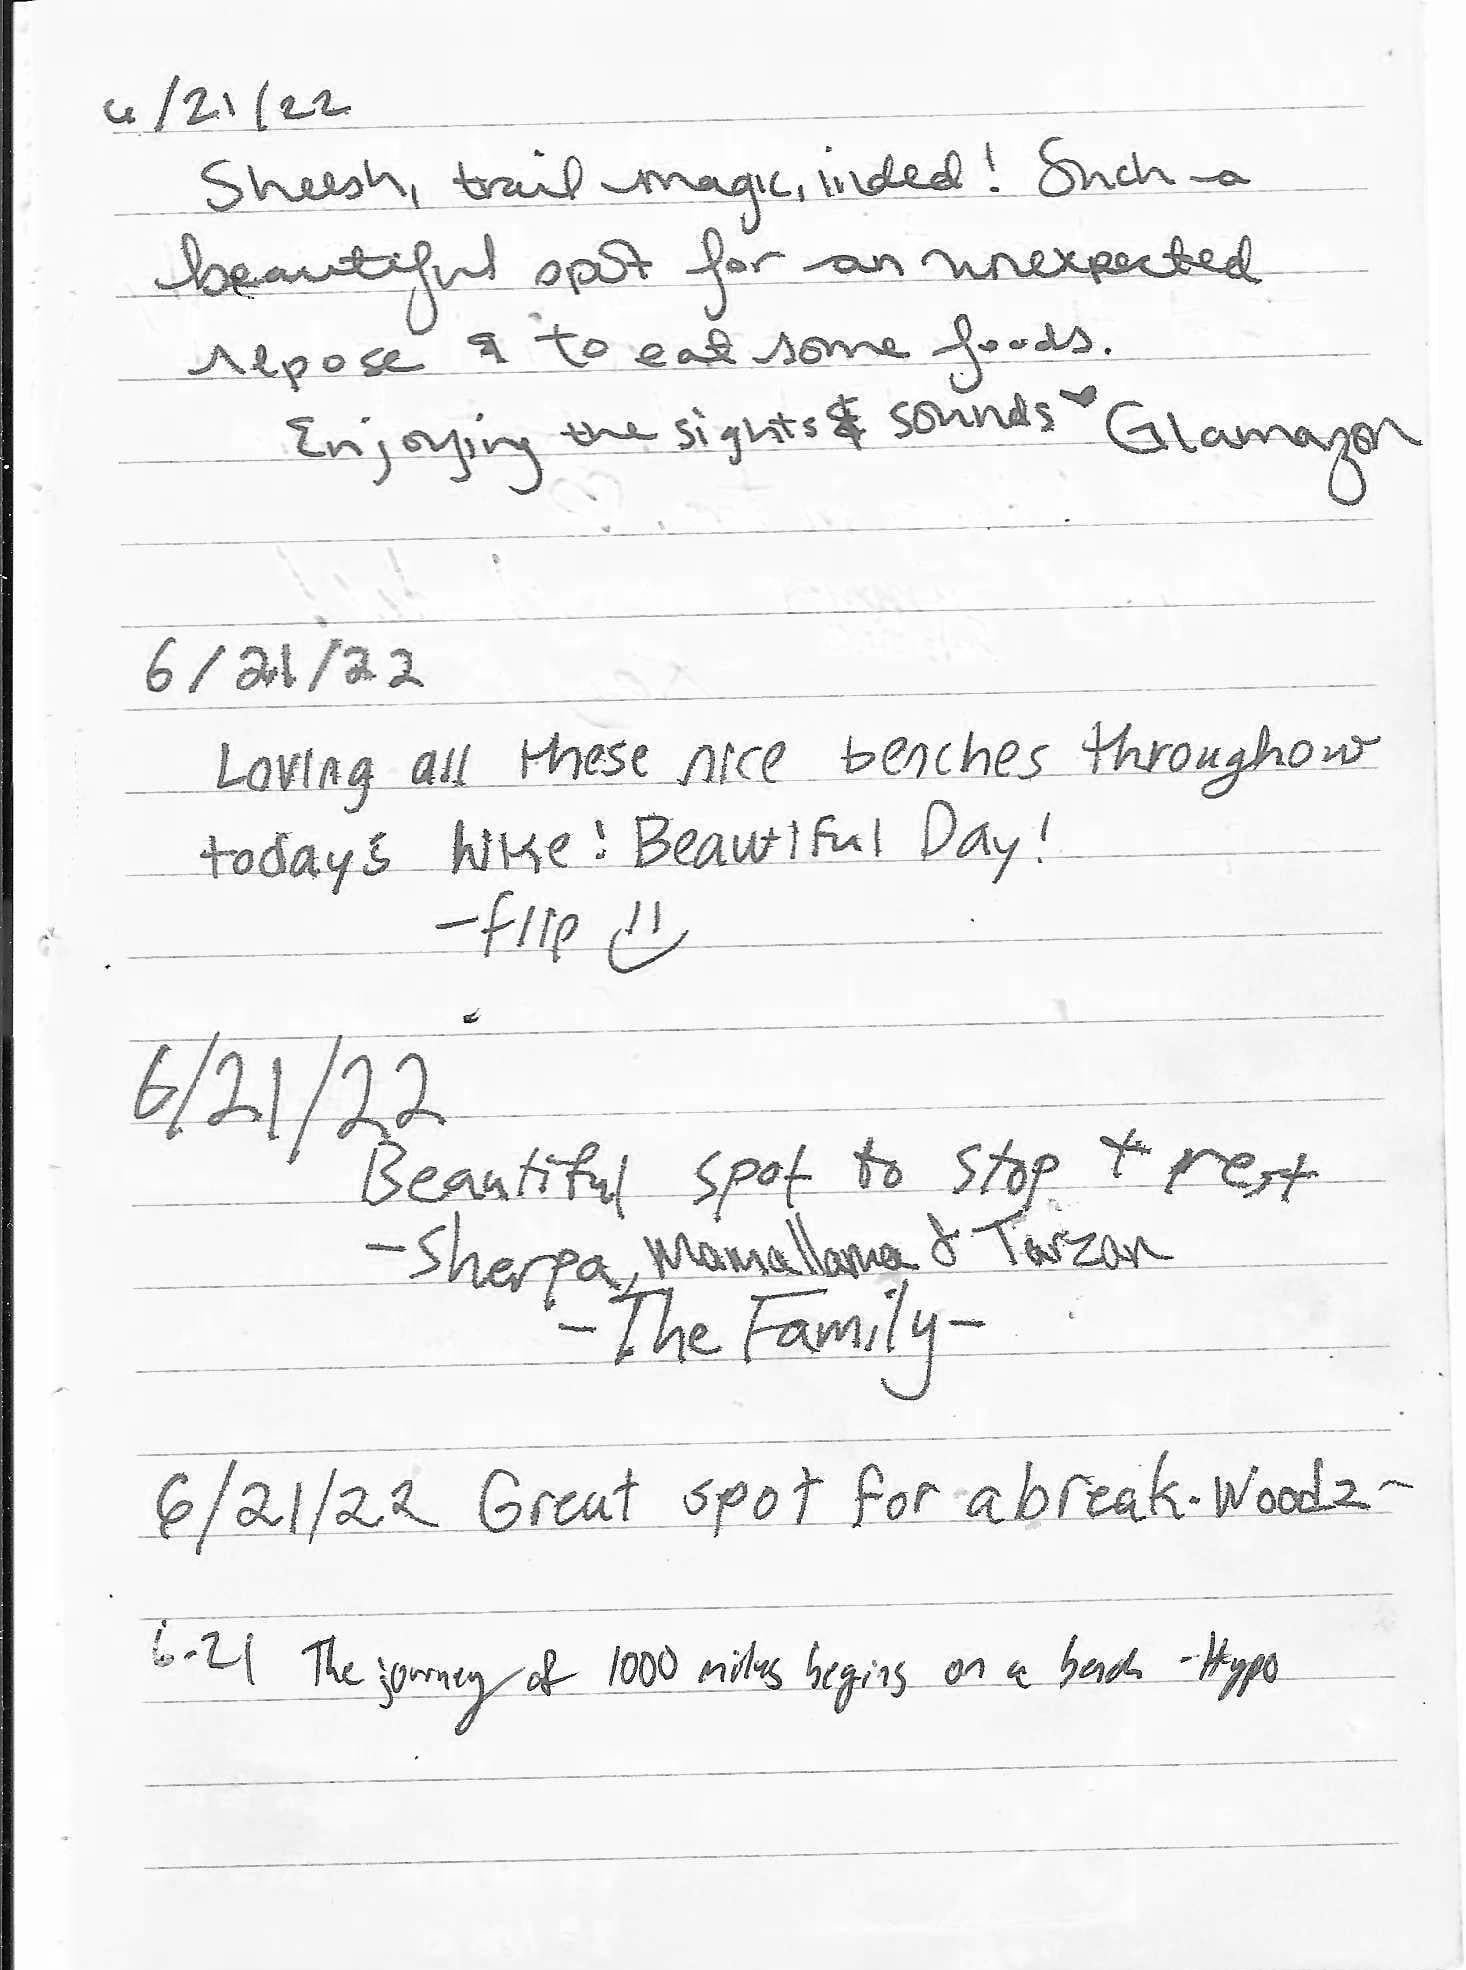 6/21/22
Sheesh, trail magic, inded! Such a
beautiful spot for an unexpected
repose & to eat some foods.
Enjoying the sights & sounds ♥ Glamazon
6/21/22
Loving all these nice benches throughout
today's hike! Beautiful Day!
-flip
6/21/22
Beautiful spot to stop + rest
-Sherpa, Mamallama & Tarzan
-The Family-
6/21/22 Great spot for a break. Woodz~
6-21 The journey of 1000 miles begins on a bench -Hypo